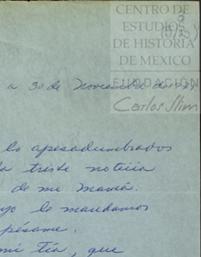 CENTRO DE
ESTUDIOS
DE HISTORIA
DE MEXICO
FUNDACIÓN
Carlos Slim
a 30 de Noviembre
lo apesadumbrados
la triste noticia
de mi Mamá.
le mandamos
pésame.
mi tía, que